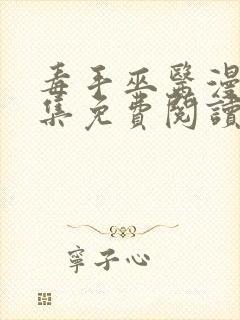 毒手巫醫漫
集免費閱讀
寧子心